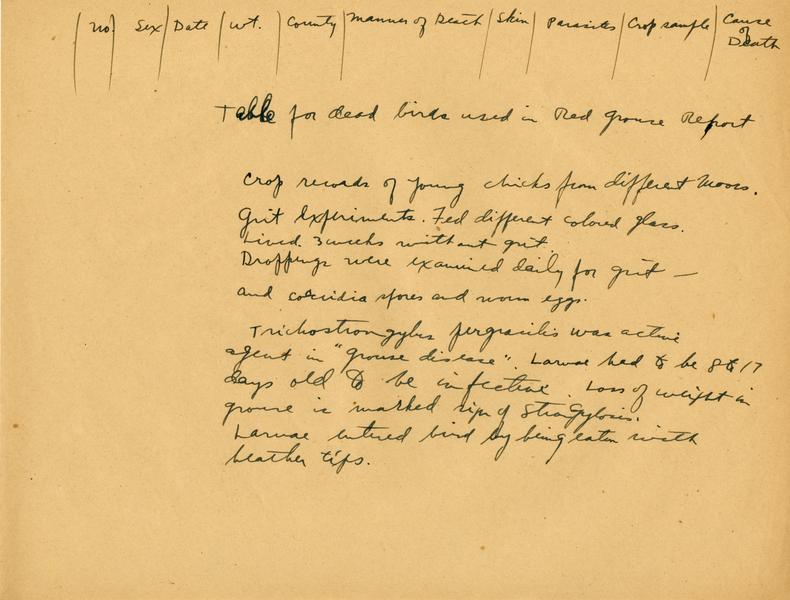 No. | Sex | Date | wt. | County | Manner of Death | Skin | Parasites | Crop sample | Cause of Death
Table for dead birds used in Red Grouse Report
Crop records of young chicks from different moors.
Grit experiments. Fed different colored glass.
Lived 3 weeks without grit.
Droppings were examined daily for grit —
and coccidia spores and worm eggs.
Trichostrongylus pergracilis was active
agent in "grouse disease". Larvae had to be 8 to 17
days old to be infective. Loss of weight in
grouse is marked sign of Strongylosis.
Larvae entered bird by being eaten with
heather tips.